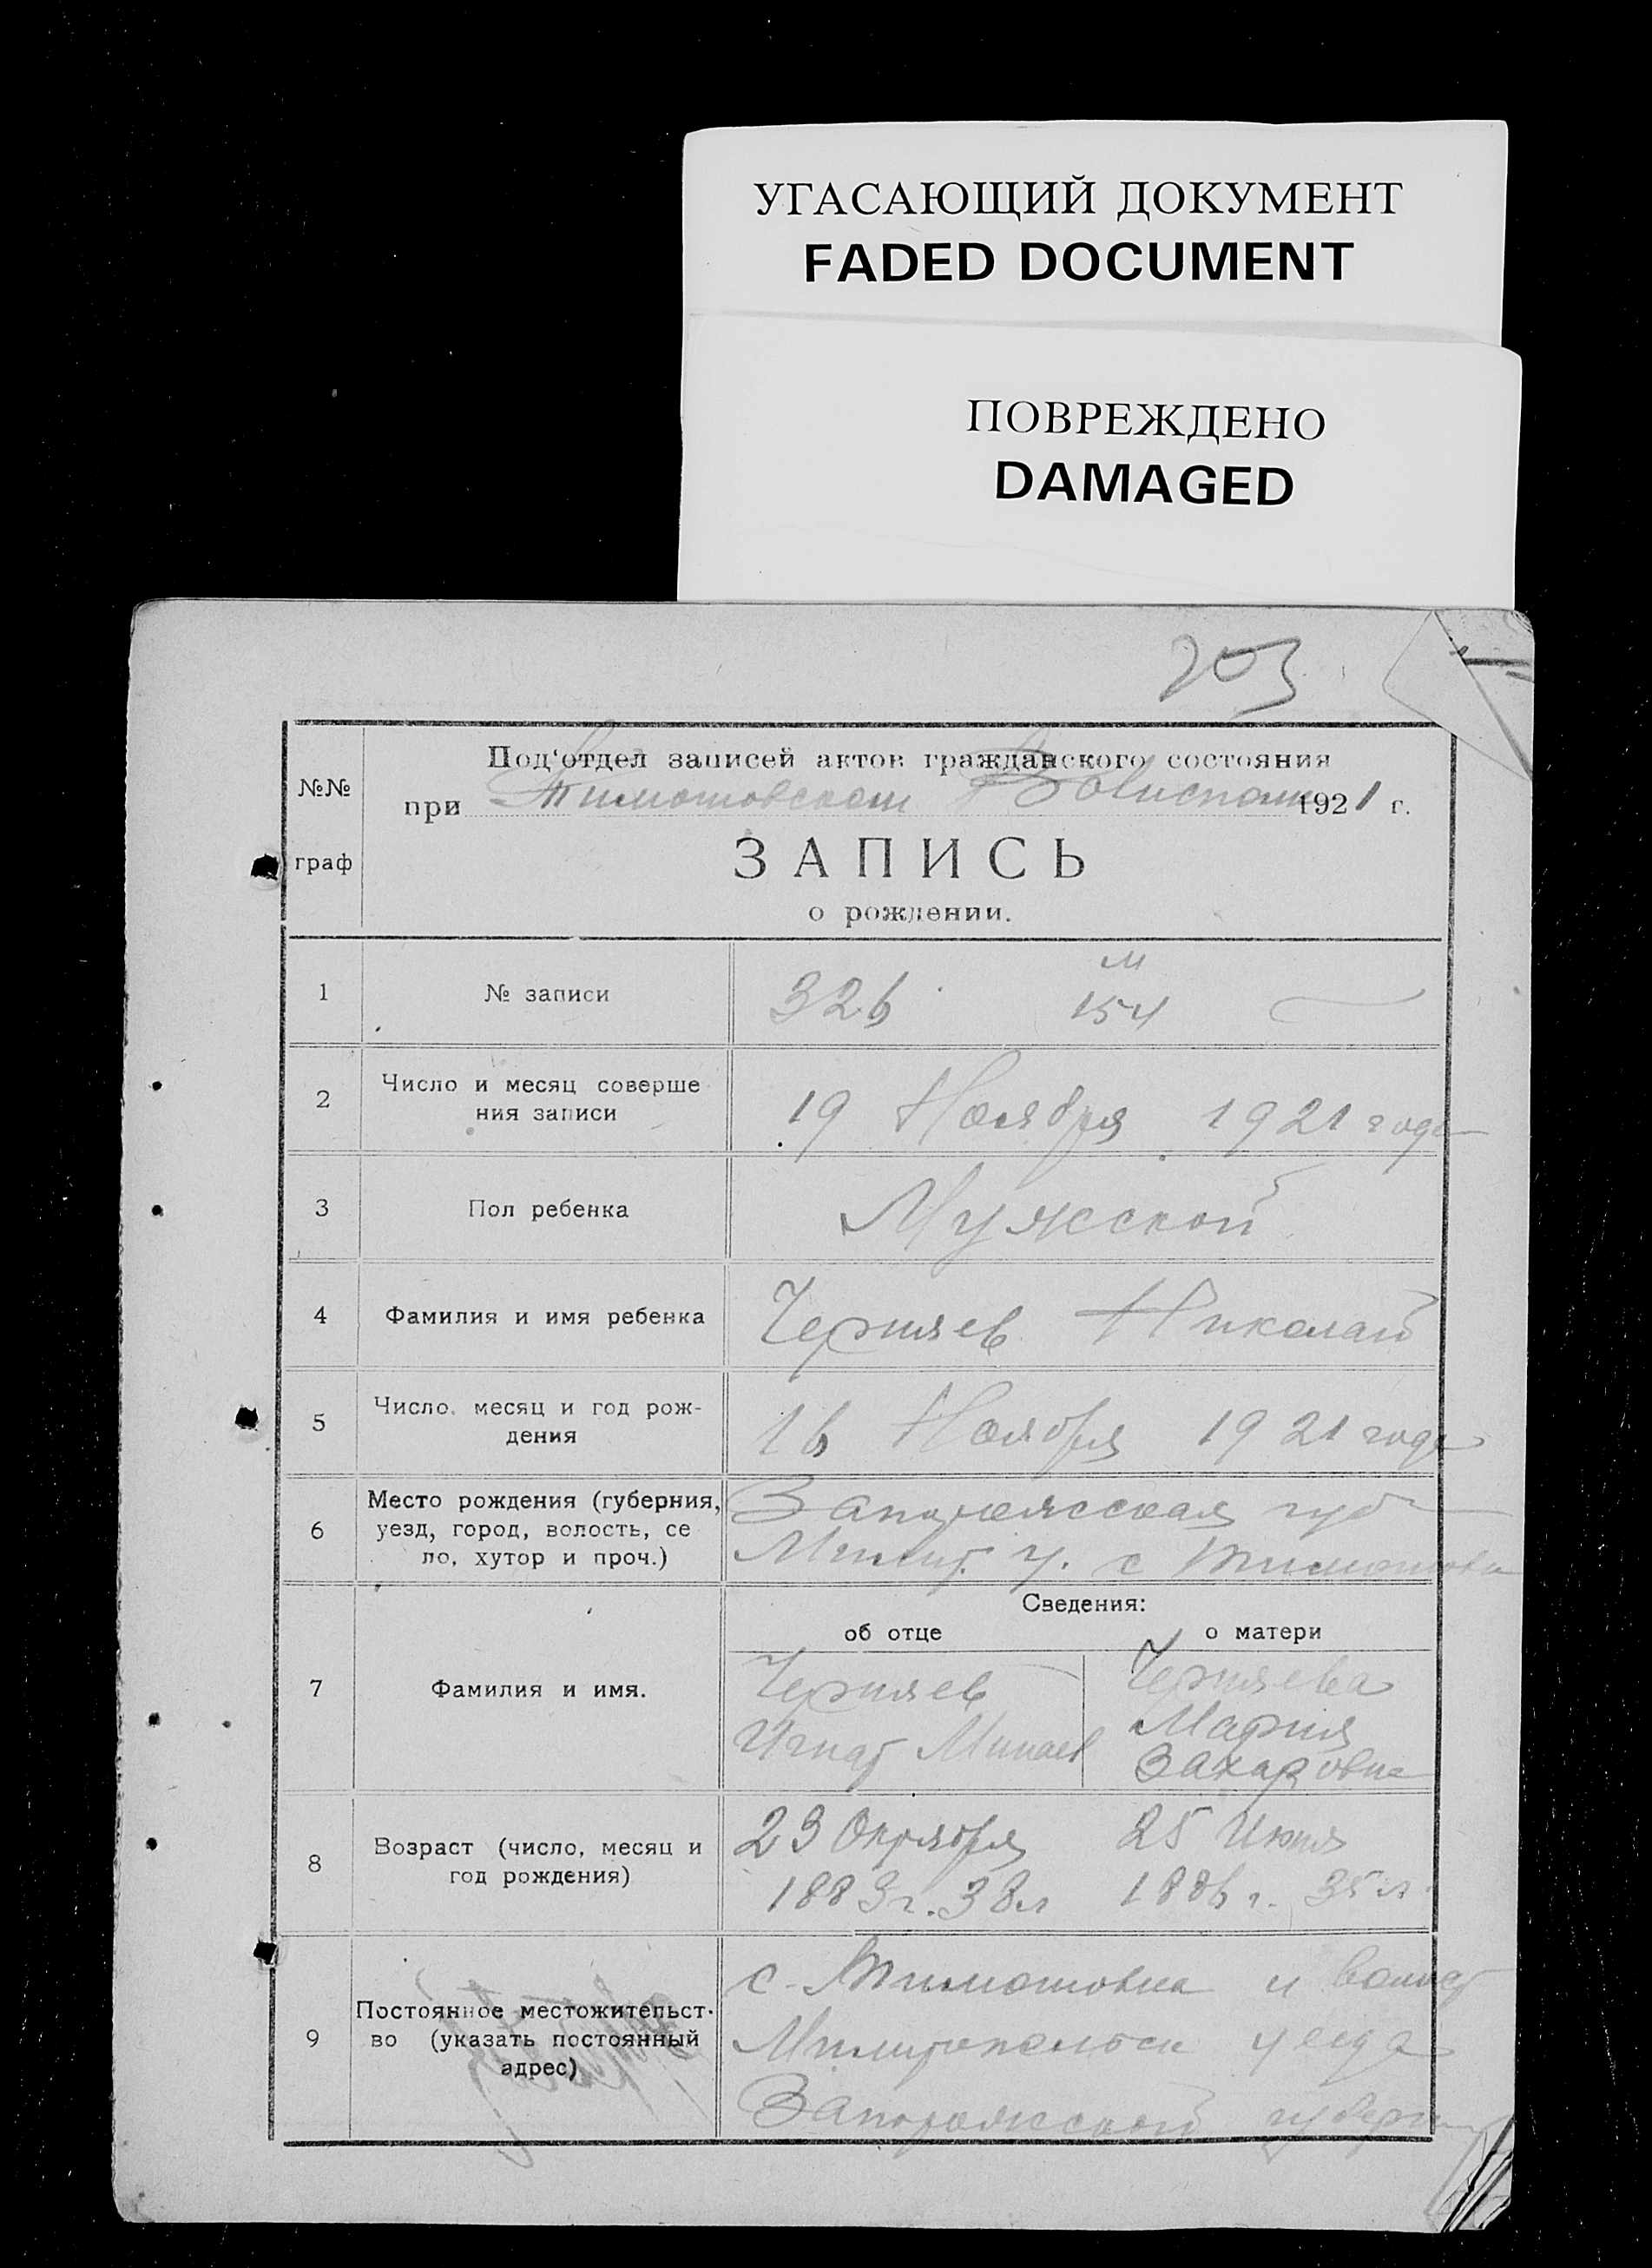 УГАСАЮЩИЙ ДОКУМЕНТ
FADED DOCUMENT
ПОВРЕЖДЕНО
DAMAGED
203
№№ граф
Под'отдел записей актов гражданского состояния
при Тимошовском Волисполк 1921 г.
ЗАПИСЬ
о рождении.
1 № записи 326 м 154
2 Число и месяц соверше
ния записи 19 Ноября 1921 года
3 Пол ребенка Мужской
4 Фамилия и имя ребенка Черняев Николай
5 Число, месяц и год рож-
дения 16 Ноября 1921 года
6 Место рождения (губерния,
уезд, город, волость, се
ло, хутор и проч.)
Запорожская губ
Мелит. у. с Тимошовка
Сведения:
об отце о матери
7 Фамилия и имя.
Черняев
Игнат Минаев
Черняева
Мария
Захаровна
8 Возраст (число, месяц и
год рождения)
23 Октября
1883 г. 38 л
25 Июля
1886 г. 35 л.
9 Постоянное местожительст-
во (указать постоянный
адрес)
с. Тимошовка и волост
Мелитопольск уезда
Запорожской губернии